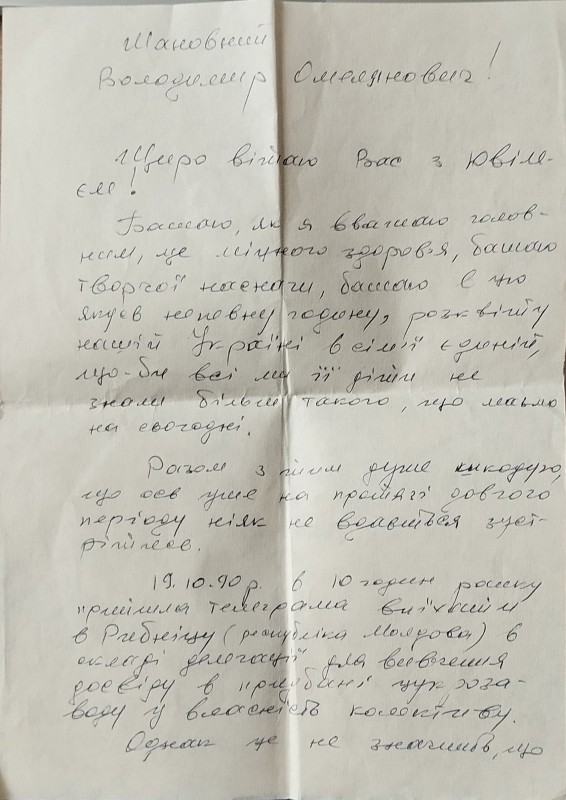 Шановний
Володимир Омелянович!
Щиро вітаю Вас з Ювіле-
єм!
Бажаю, як я вважаю голов-
ним, це міцного здоров'я, бажаю
творчої наснаги, бажаю в цю
якусь непевну годину, розквіту
нашій Україні в сім'ї єдиній,
що-би всі ми її діти не
знали більш такого, що маємо
на сьогодні.
Разом з тим дуже шкодую,
що ось уже на протязі довгого
періоду ніяк не вдається зуст-
рітись.
19.10.90р. в 10 годин ранку
прийшла телеграма виїхати
в Рибніцу (республіка Молдова) в
складі делегації для вивчення
досвіду в придбані цукроза-
воду у власність колективу.
Однак це не значить, що